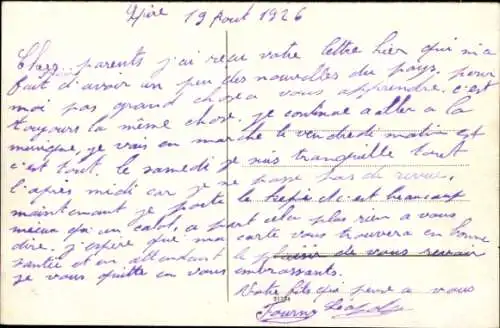 Spire 19 Aout 1926
Chers parents j'ai reçu votre lettre hier qui m'a
fait d'avoir un peu des nouvelles du pays. pour
moi pas grand chose a vous apprendre. c'est
toujours la même chose. je continue a aller a la
musique, je vais en marche le vendredi matin et
c'est tout. le samedi je suis tranquille tout
l'après midi car je ne passe pas de revue.
maintenant je porte le kepie et c'est beaucoup
mieux qu'un calot, a part cela plus rien a vous
dire. j'espère que ma carte vous trouvera en bonne
santée et en attendant le plaisir de vous revoir
je vous quitte en vous embrassants.
Votre fils qui pense a vous
Fourny